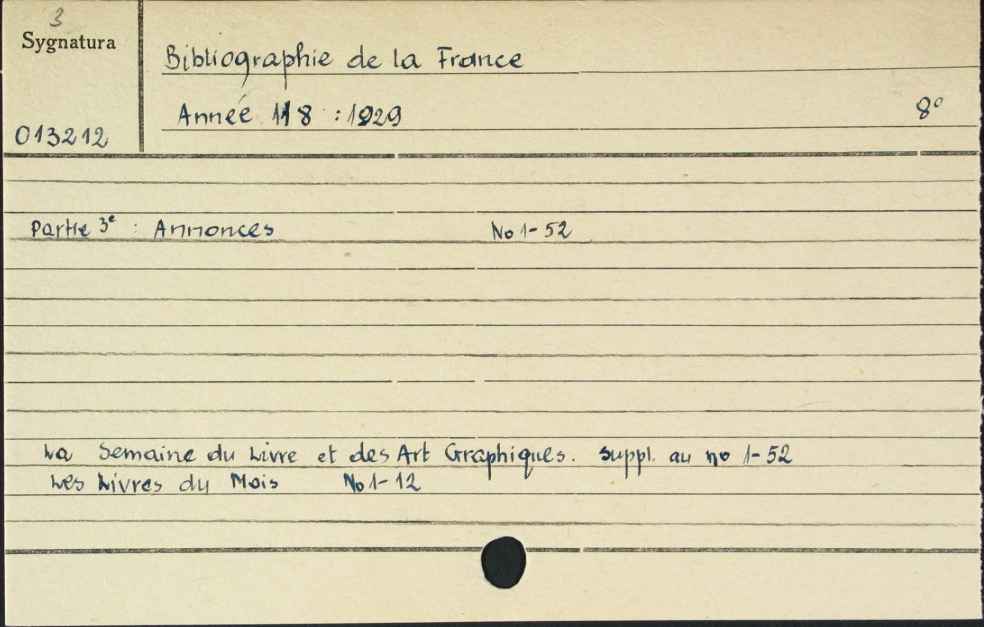 3
Sygnatura
013212
Bibliographie de la France
Année 118 : 1929
8°
Partie 3e : Annonces No 1-52
La Semaine du Livre et des Art Graphiques. Suppl. au no 1-52
Les Livres du Mois No 1-12